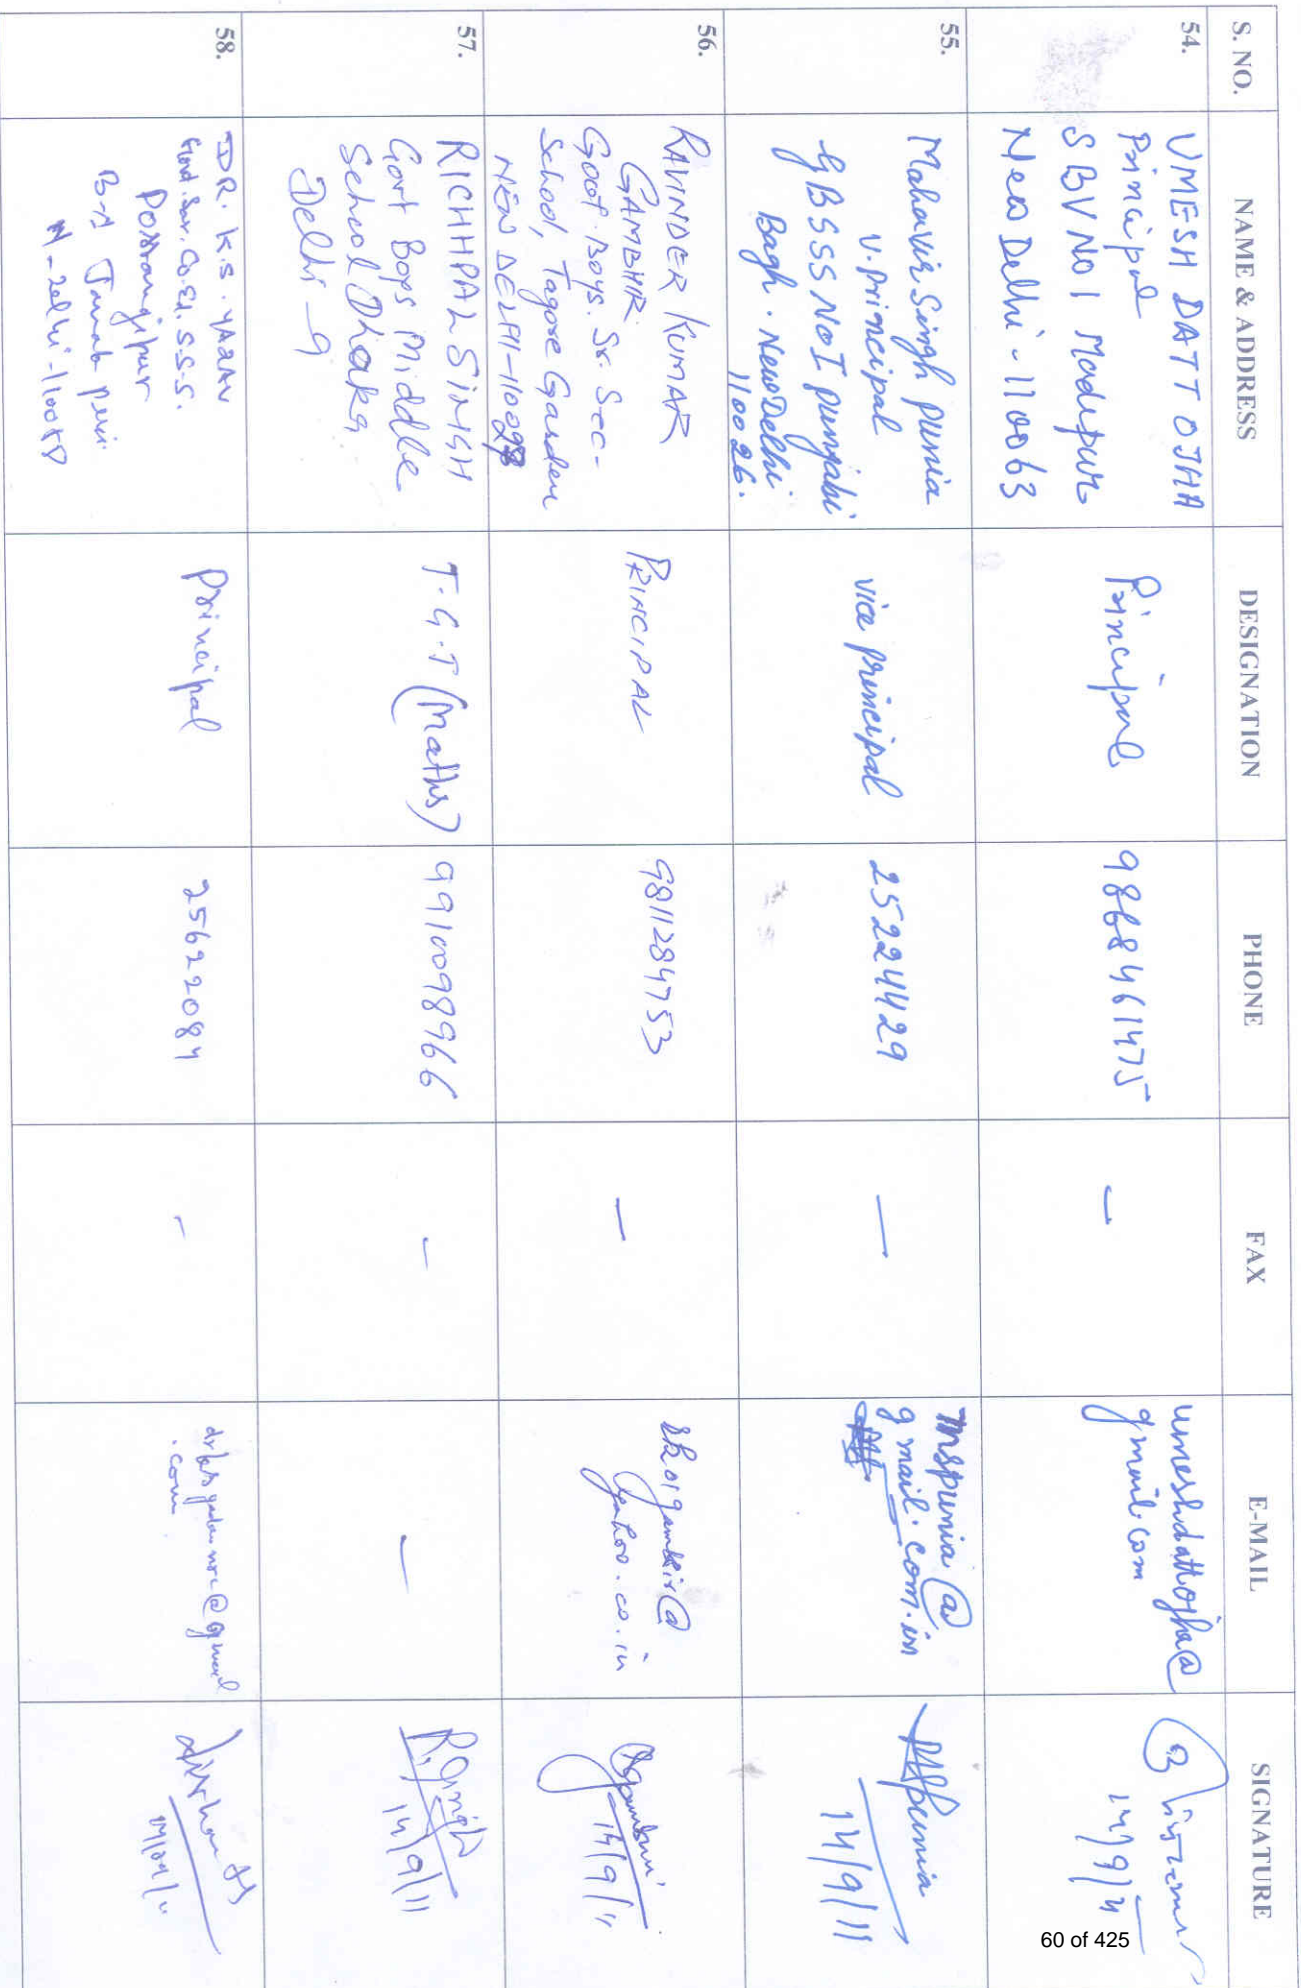 S. NO. NAME & ADDRESS DESIGNATION PHONE FAX E-MAIL SIGNATURE
54.
UMESH DATT OJHA
Principal
SBV NO 1 Madipur
New Delhi - 110063
Principal
9868461475
—
umeshdattojha@
gmail.com
14/9/11
55.
Mahavir Singh Punia
V. principal
GBSSS NO I punjabi
Bagh. New Delhi
110026.
vice principal
25224429
—
mspunia@
gmail.com.in
MSpunia
14/9/11
56.
RAVINDER KUMAR
GAMBHIR
Govt. Boys. Sr. Sec-
School, Tagore Garden
NEW DELHI-1100
PRINCIPAL
9811284753
—
yahoo.co.in
14/9/11
57.
RICHHPAL SINGH
Govt Boys Middle
School Dhaka
Delhi-9
T.G.T (Maths)
9910098966
-
—
R. Singh
14/9/11
58.
DR. K.S. YADAV
Govt. Sar. Co.Ed. S.S.S.
Possangipur
B-1 Janak puri
N-Delhi-110058
Principal
25622084
-
@gmail
.com
60 of 425